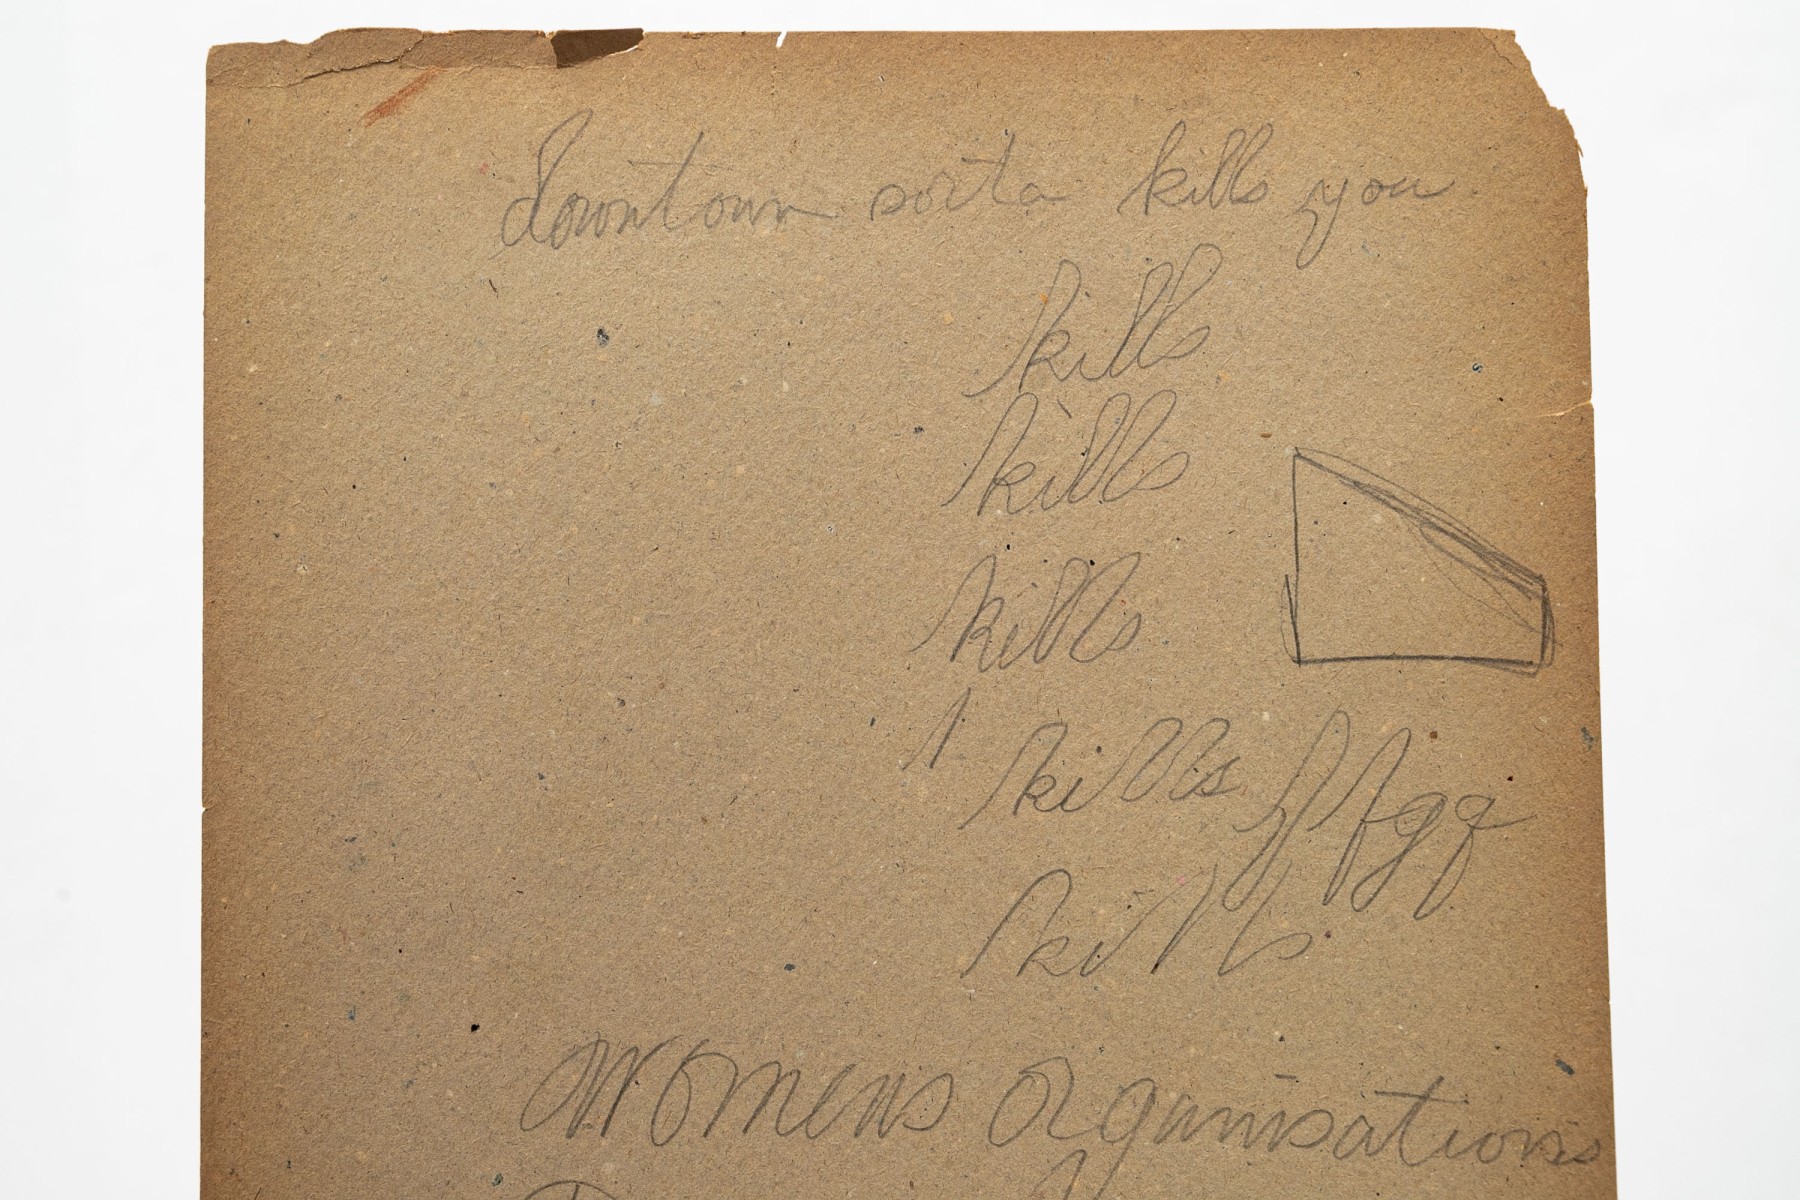 downtown sorta kills you
kills
kills
kills
kills
kills
Womens Organisations